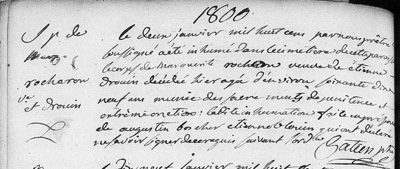 1800
Sp de
Marg.
rocheron
ve
et drouin
le deux janvier mil huit cens par nous prêtre
soussigné a été inhumé dans le cimetiere de cette paroisse
le corps de Marguerite rocheron veuve de étienne
drouin décédée hier agée d'environ soixante dix
neuf ans munie des sacrements de penitence et
extrême onction: la dite inhumation faite en presence
de augustin bocher etienne qui ont declaré
ne savoir signer de ce requis suivant lord.ce Gatien ptre
janvier mil huit